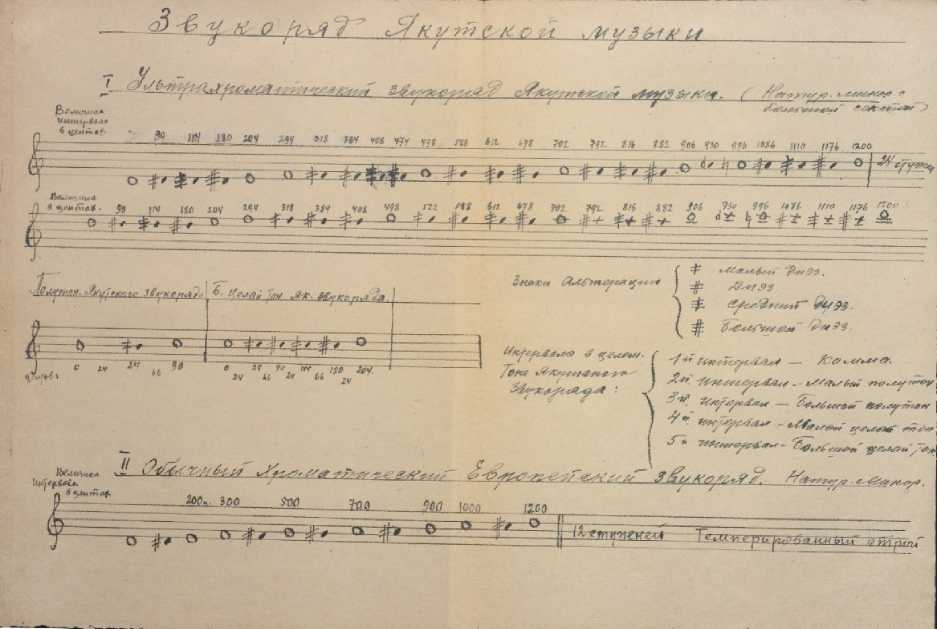 Звукоряд Якутской музыки
I Ультрахроматический звукоряд Якутской музыки. (Натур. минор с
большой секстой)
Величина
интервала
в центах.
90 114 180 204 294 318 384 408 474 498 588 612 678 702 792 816 882 906 930 996 1086 1110 1176 1200
24 ступени
Величина
в центах.
90 114 180 204 294 318 384 408 498 522 588 612 678 702 792 816 882 906 930 996 1086 1110 1176 1200
Полутон. Якутского звукоряда
Б. Целый тон Як. звукоряда
0 24 24 66 90
0 24 66 90 114 66 180 24 204
Знаки Альтерации
Малый Диэз.
Диэз
Средний Диэз.
Большой Диэз.
Интервалы в целом
Тоне Якутского
Звукоряда:
1й интервал — Комма.
2й интервал - Малый полутон
3й интервал — Большой полутон
4й интервал - Малый целый тон
5й интервал - Большой целый тон
II Обычный Хроматический Европейский звукоряд. Натур. Минор.
Величина
Интервала
в центах
200 300 500 700 900 1000 1200
12 ступеней Темперированный строй